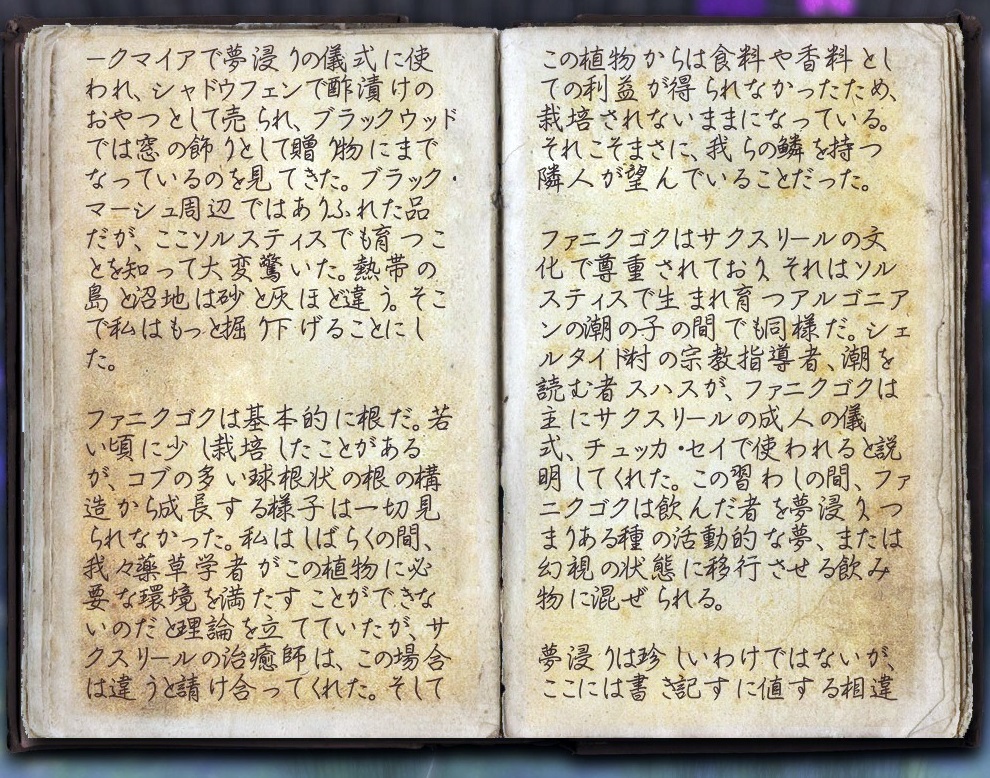 ークマイアで夢浸りの儀式に使
われ、シャドウフェンで酢漬けの
おやつとして売られ、ブラックウッド
では窓の飾りとして贈り物にまで
なっているのを見てきた。ブラック・
マーシュ周辺ではありふれた品
だが、ここソルスティスでも育つこ
とを知って大変驚いた。熱帯の
島と沼地は砂と灰ほど違う。そこ
で私はもっと掘り下げることにし
た。
ファニクゴクは基本的に根だ。若
い頃に少し栽培したことがある
が、コブの多い球根状の根の構
造から成長する様子は一切見
られなかった。私はしばらくの間、
我々薬草学者がこの植物に必
要な環境を満たすことができな
いのだと理論を立てていたが、サ
クスリールの治癒師は、この場合
は違うと請け合ってくれた。そして
この植物からは食料や香料とし
ての利益が得られなかったため、
栽培されないままになっている。
それこそまさに、我らの鱗を持つ
隣人が望んでいることだった。
ファニクゴクはサクスリールの文
化で尊重されており、それはソル
スティスで生まれ育つアルゴニア
ンの潮の子の間でも同様だ。シェ
ルタイド村の宗教指導者、潮を
読む者スハスが、ファニクゴクは
主にサクスリールの成人の儀
式、チュッカ・セイで使われると説
明してくれた。この習わしの間、ファ
ニクゴクは飲んだ者を夢浸り、つ
まりある種の活動的な夢、または
幻視の状態に移行させる飲み
物に混ぜられる。
夢浸りは珍しいわけではないが、
ここには書き記すに値する相違